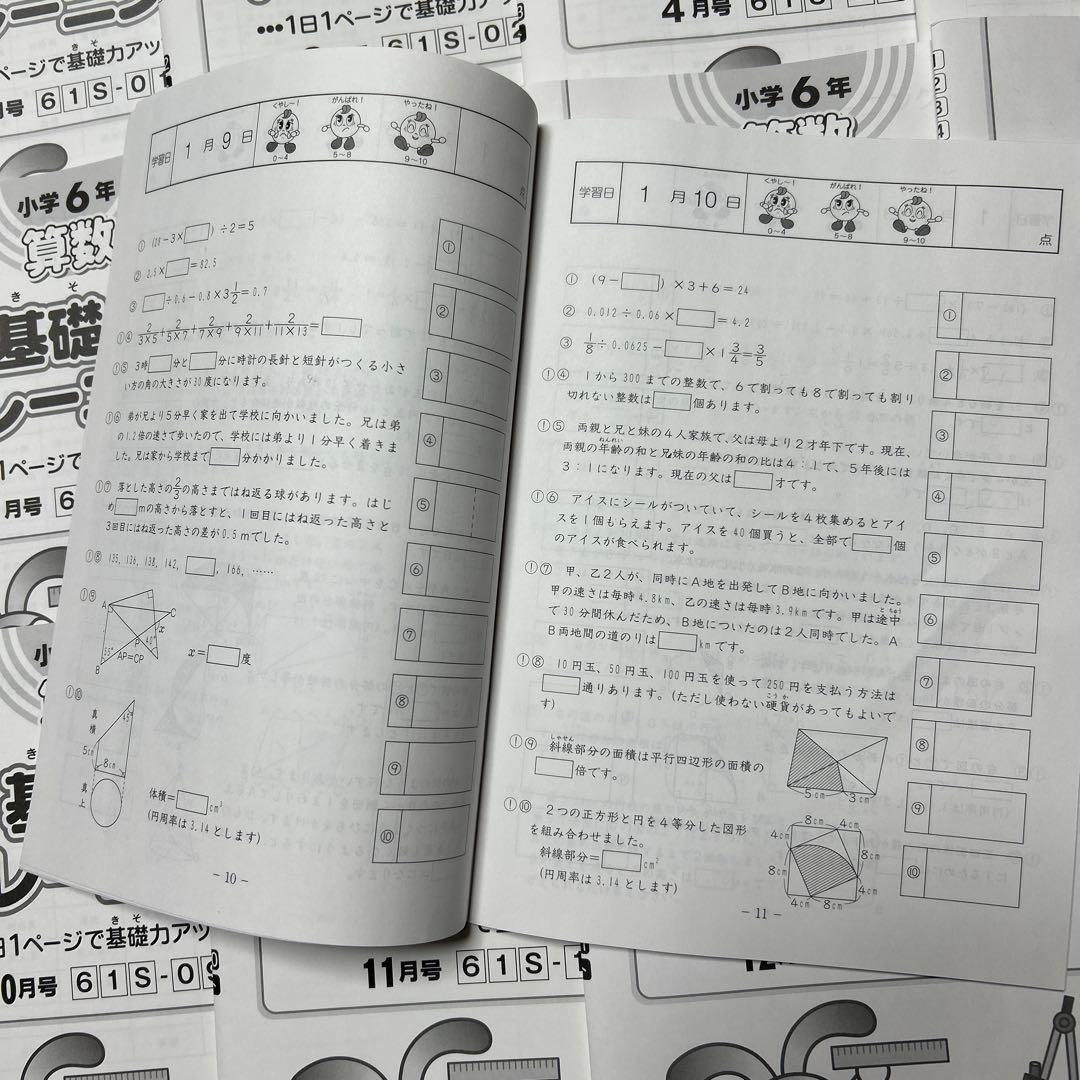 ページで基礎力アッ
月号 61S-0
1日1ページで基礎力アッ
61S-0
4月号 61S
小学6年
算数
小学6年
算数
き そ
基礎
レーニ
1ページで基礎力アッ
月号 61S-
学習日 1月9日
くやし〜！ がんばれ！ やったね！
0~4 5~8 9~10
点
① (28−3×□)÷2=5
② 2.5×□=82.5
③ □÷0.6−0.8×3 1/2=0.7
①④ 2/3×5+2/5×7+2/7×9+2/9×11+2/11×13=□
①⑤ 3時□分と□分に時計の長針と短針がつくる小さ
い方の角の大きさが30度になります。
①⑥ 弟が兄より5分早く家を出て学校に向かいました。兄は弟
の1.2倍の速さで歩いたので、学校には弟より1分早く着きま
した。兄は家から学校まで□分かかりました。
①⑦ 落とした高さの2/3の高さまではね返る球があります。はじ
め□mの高さから落とすと、1回目にはね返った高さと
3回目にはね返った高さの差が0.5mでした。
①⑧ 135, 136, 138, 142, □, 166, ……
①⑨
A C
x
P 40°
55°
B AP=CP
x=□度
①⑩
真横
45°
5cm
8cm
真上
体積=□cm³
(円周率は3.14とします)
①
②
③
④
⑤
⑥
⑦
⑧
⑨
⑩
− 10 −
学習日 1月10日
くやし〜！ がんばれ！ やったね！
0~4 5~8 9~10
点
① (9−□)×3+6=24
② 0.012÷0.06×□=4.2
③ 1/8÷0.0625−□×1 3/4=3/5
①④ 1から300までの整数で、6で割っても8で割っても割り
切れない整数は□個あります。
①⑤ 両親と兄と妹の4人家族で、父は母より2才年下です。現在、
ねんれい
両親の年齢の和と兄妹の年齢の和の比は4：1で、5年後には
3：1になります。現在の父は□才です。
①⑥ アイスにシールがついていて、シールを4枚集めるとアイ
スを1個もらえます。アイスを40個買うと、全部で□個
のアイスが食べられます。
①⑦ 甲、乙2人が、同時にA地を出発してB地に向かいました。
と ちゅう
甲の速さは毎時4.8km、乙の速さは毎時3.9kmです。甲は途中
で30分間休んだため、B地についたのは2人同時でした。A
B両地間の道のりは□kmです。
①⑧ 10円玉、50円玉、100円玉を使って250円を支払う方法は
こう か
□通りあります。(ただし使わない硬貨があってもよいで
す)
しゃせん
①⑨ 斜線部分の面積は平行四辺形の面積の
□倍です。
5cm 3cm
①⑩ 2つの正方形と円を4等分した図形
を組み合わせました。
斜線部分=□cm²
(円周率は3.14とします)
8cm 4cm
4cm 8cm
8cm 4cm
4cm 8cm
①
②
③
④
⑤
⑥
⑦
⑧
⑨
⑩
− 11 −
き そ
1ページで基礎力アッ
0月号 61S-09
11月号 61S-1